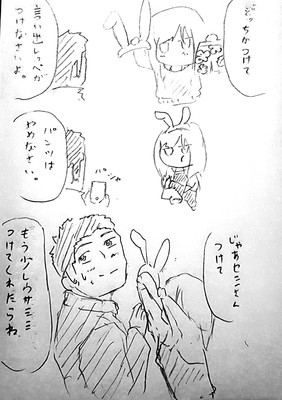 どっちかつけて
言い出しっぺが
つけなさいよ。
パンツは
やめなさい。
パシャ
じゃあセンさん
つけて
もう少しウサミミ
つけてくれたらね